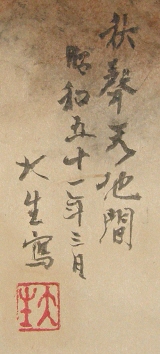 秋聲天地間
昭和五十一年三月
大生寫
大生